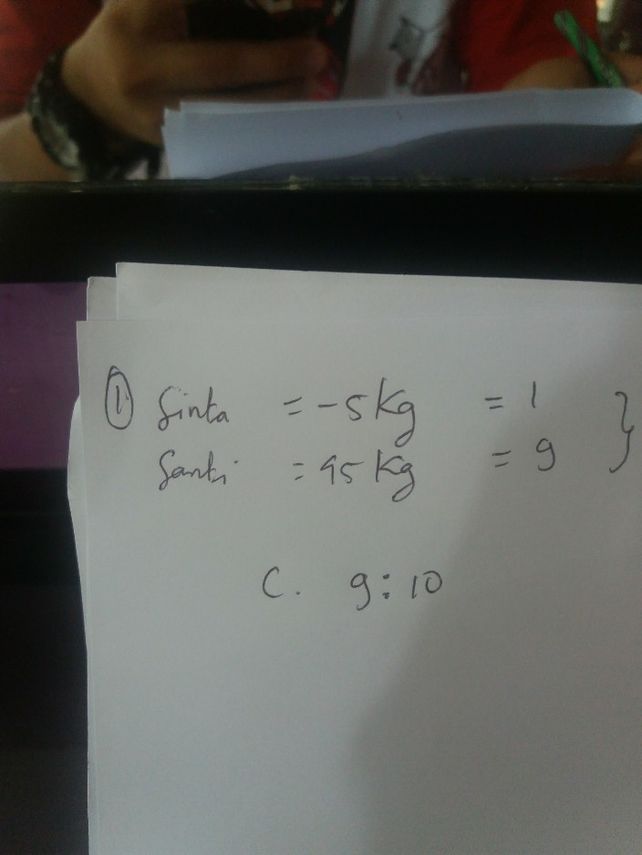 ① Sinta = -5 Kg = 1 }
Santi = 45 Kg = 9
C. 9:10